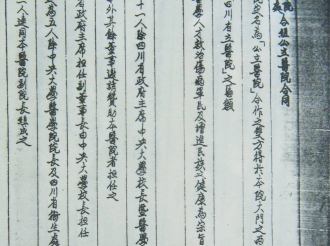 合組公立醫院合同
院定名為「公立醫院」合作之雙方得於本院大門之兩
四川省立醫院」之匾額
醫學人才救治傷病軍民及增進民族之健康為宗旨
十一人除四川省政府主席中央大學校長暨醫學
外其餘董事邀請贊助本醫院者担任之
省政府主席担任副董事長由中央大學校長担任
為五人除中央大學醫學院院長及四川省衛生處
一人連同本醫院副院長組成之